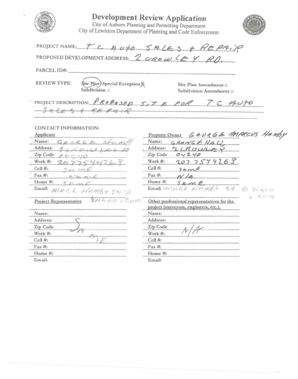 Development Review Application
City of Auburn Planning and Permitting Department
City of Lewiston Department of Planning and Code Enforcement
PROJECT NAME: TC AUTO SALES & REPAIR
PROPOSED DEVELOPMENT ADDRESS: 2 CROWLEY RD.
PARCEL ID#:
REVIEW TYPE: Site Plan/Special Exception Site Plan Amendment
Subdivision Subdivision Amendment
PROJECT DESCRIPTION: PROPOSED SITE FOR TC AUTO
SALES & REPAIR
CONTACT INFORMATION:
Applicant Property Owner GEORGE MARCUS
Name: GEORGE Name: GRANGE HALL
Address: Address: 2 CROWLEY
Zip Code 04240 Zip Code 04240
Work #: 2077544268 Work #: 2077544268
Cell #: SAME Cell #: SAME
Fax #: Fax #: N/A
Home #: SAME Home #: SAME
Email: Email:
Project Representative Other professional representatives for the
project (surveyors, engineers, etc.),
Name: Name:
Address: Address:
Zip Code Zip Code
Work #: Work #: N/A
Cell #: Cell #:
Fax #: Fax #:
Home #: Home #:
Email: Email: